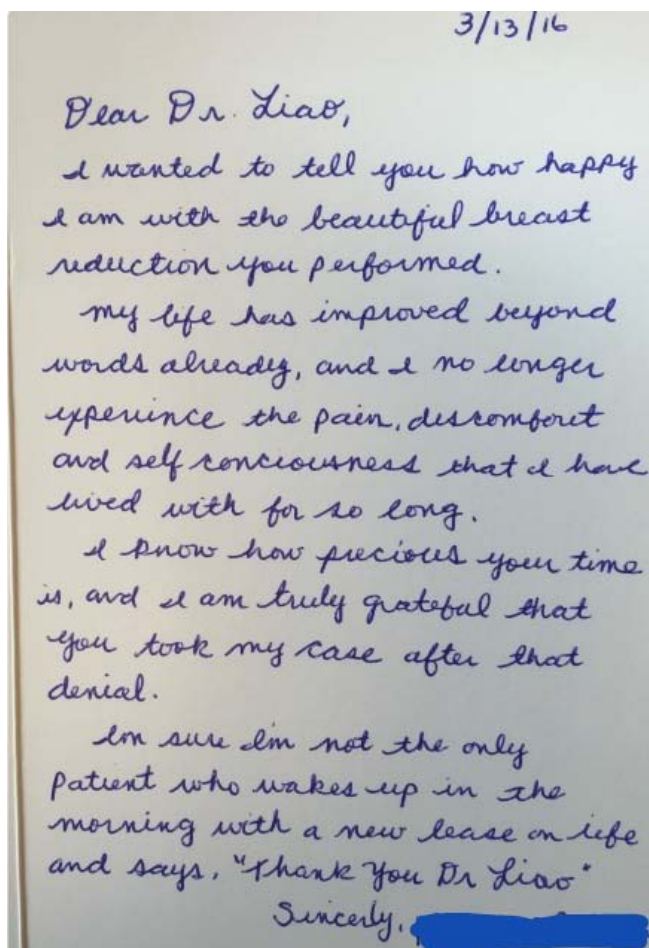 3/13/16
Dear Dr. Liao,
I wanted to tell you how happy
I am with the beautiful breast
reduction you performed.
My life has improved beyond
words already, and I no longer
experience the pain, discomfort
and self conciousness that I have
lived with for so long.
I know how precious your time
is, and I am truly grateful that
you took my case after that
denial.
Im sure Im not the only
patient who wakes up in the
morning with a new lease on life
and says, "Thank You Dr Liao"
Sincerly,